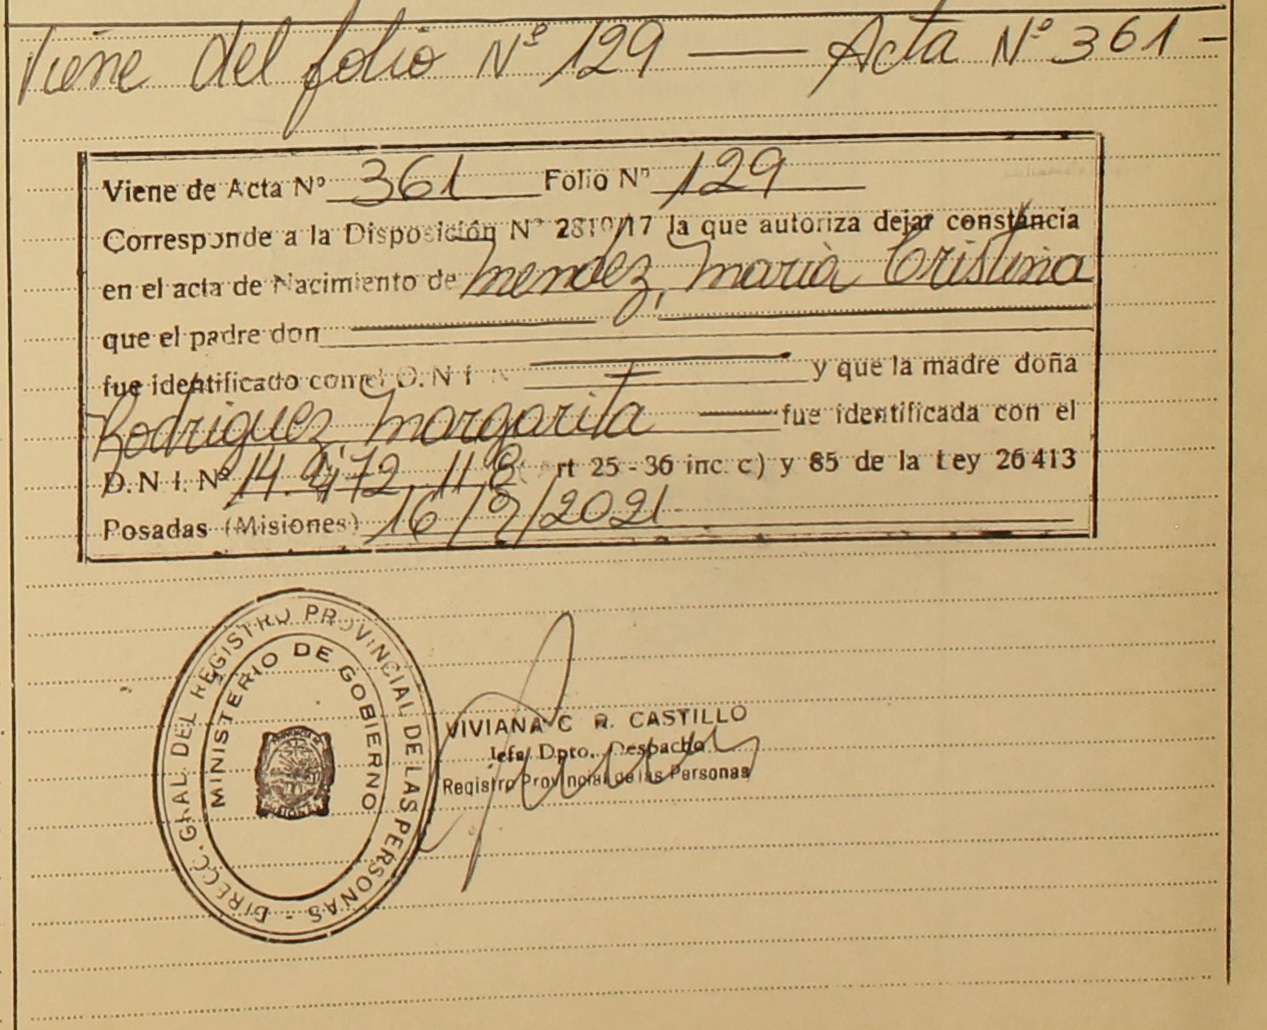 Viene del folio Nº 129 — Acta Nº 361 -
Viene de Acta Nº 361 Folio Nº 129
Corresponde a la Disposición Nº 2810/17 la que autoriza dejar constancia
en el acta de Nacimiento de Mendez, Maria Cristina
que el padre don
fue identificado con el D.N.I. N y que la madre doña
Rodriguez, Margarita — fue identificada con el
D.N.I. Nº 14.472.118 (Art 25 - 36 inc. c) y 85 de la Ley 26413
Posadas (Misiones) 16/9/2021
DIRECC. GRAL. DEL REGISTRO PROVINCIAL DE LAS PERSONAS -
MINISTERIO DE GOBIERNO
VIVIANA C R. CASTILLO
Jefa Dpto. Despacho
Registro Provincial de las Personas